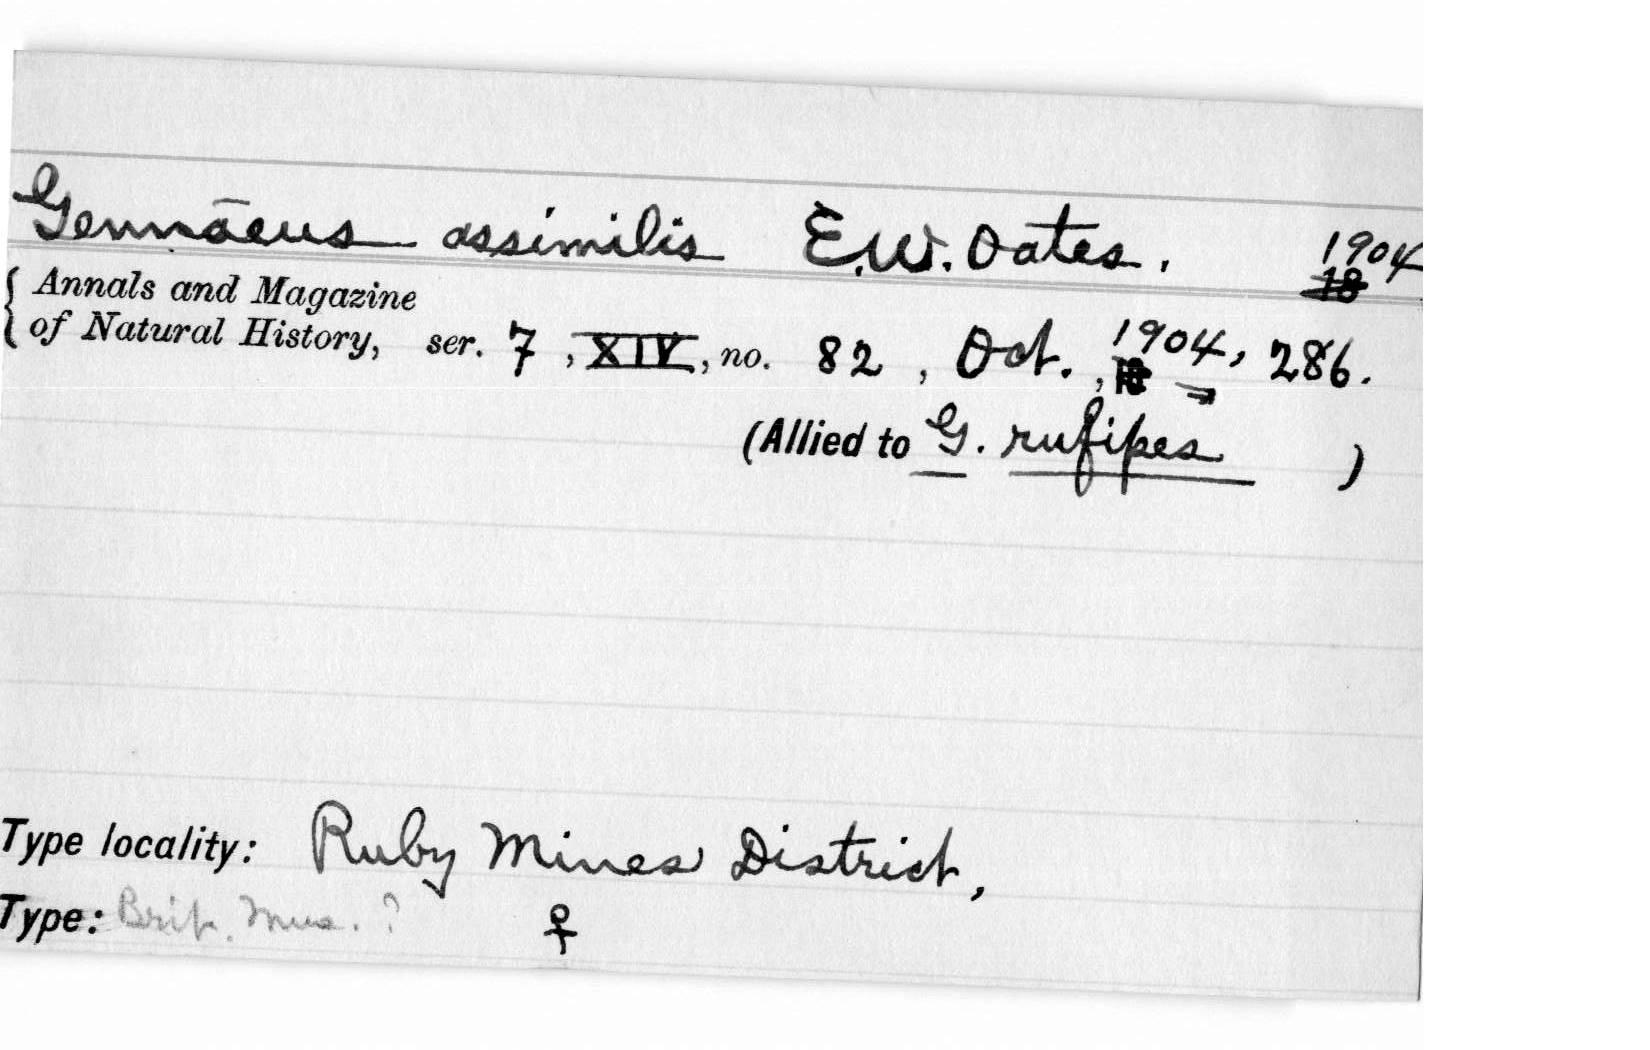 Gennāeus assimilis E.W. Oates. 1904
18
{ Annals and Magazine
of Natural History, ser. 7, XIV, no. 82, Oct., 1904, 286.
18
(Allied to G. rufipes )
Type locality: Ruby Mines District,
Type: Brit. Mus. ? ♀